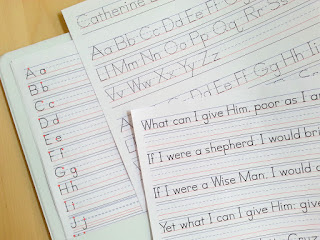 Aa
Bb
Cc
Dd
Ee
Ff
Gg
Hh
Ii
Jj
Catherine
Aa Bb Cc Dd Ee Ff Gg
Ll Mm Nn Oo Pp Qq Rr Ss
Vv Ww Xx Yy Zz
Cc Dd Ee Ff Gg Hh
What can I give Him, poor as I
If I were a shepherd, I would bri
If I were a Wise Man, I would
Yet what I can I give Him: give
Cruz